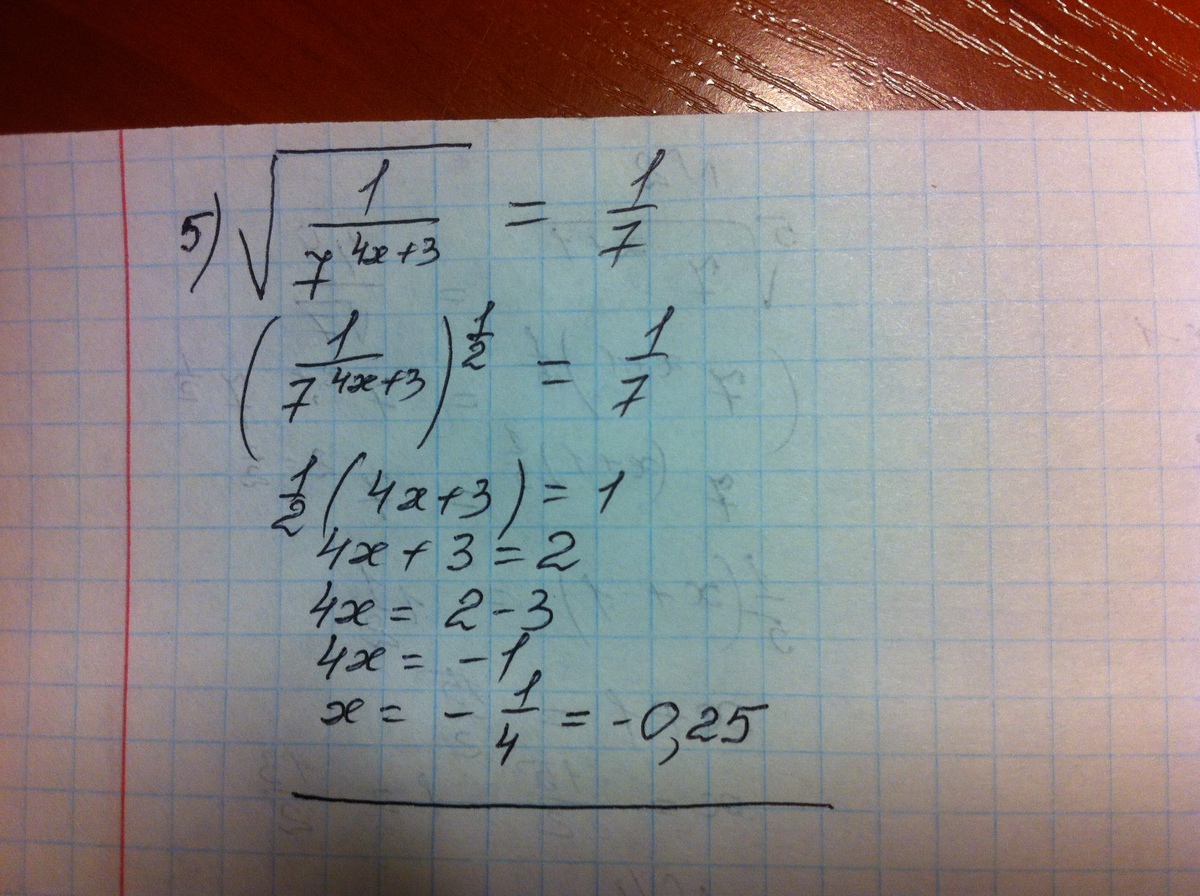 5) √(1/7^(4x+3)) = 1/7
(1/7^(4x+3))^(1/2) = 1/7
1/2 (4x+3) = 1
4x + 3 = 2
4x = 2 - 3
4x = -1
x = - 1/4 = -0,25